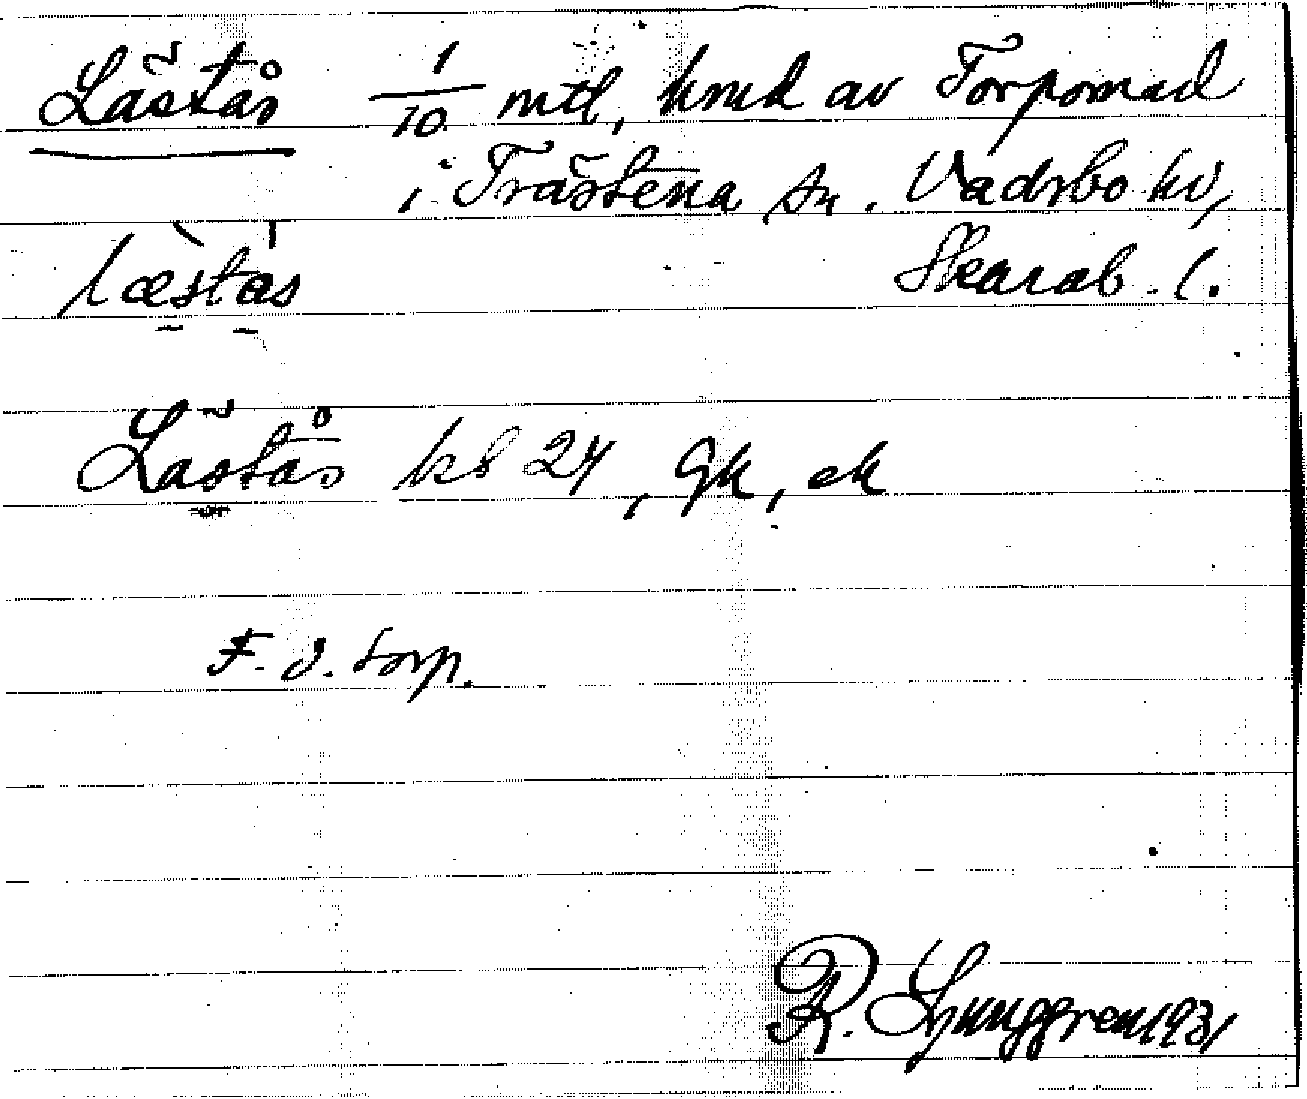 Lästås 1/10 mtl, hmd av Torpomad
i Trästena sn. Vadsbo hd,
læ̀stás Skarab. l.
Lästås ks 24, Gk, ek
F. d. torp.
R. Ljunggren 1931